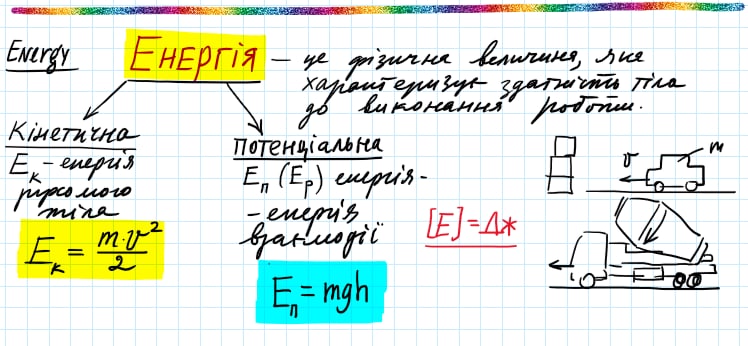 Energy
Енергія – це фізична величина, яка
характеризує здатність тіла
до виконання роботи.
Кінетична
Eк - енергія
рухомого
тіла
Eк = m·v²/2
потенціальна
Eп (Eр) енергія -
- енергія
взаємодії
Eп = mgh
[E] = Дж
v
m